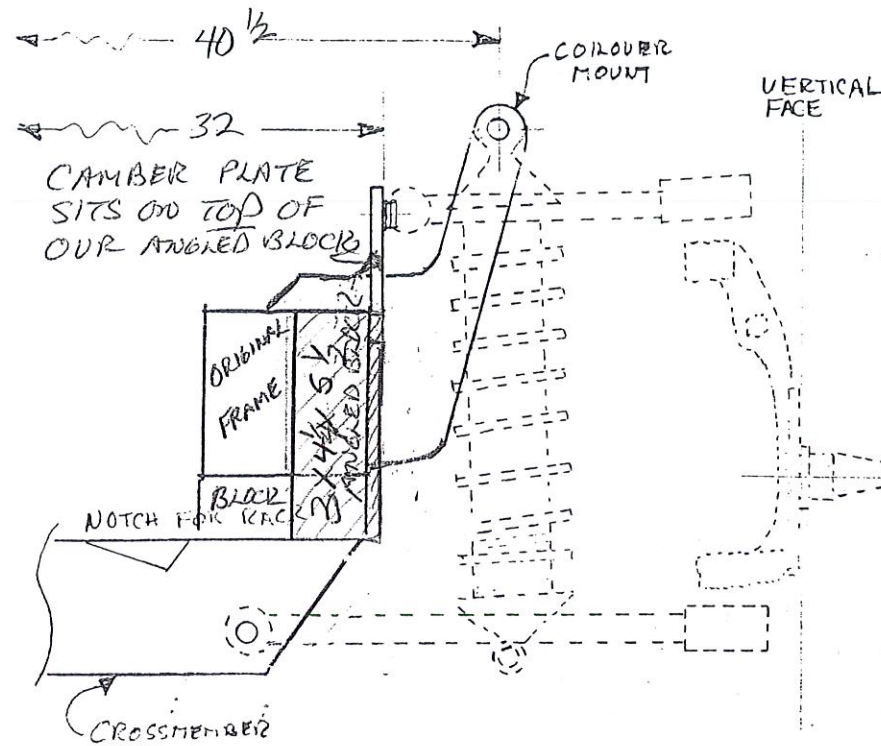 40 1/2
COILOVER
MOUNT
VERTICAL
FACE
32
CAMBER PLATE
SITS ON TOP OF
OUR ANGLED BLOCK
ORIGINAL
FRAME
3 X 4 1/4 X 6 1/2
ANGLED BLOCK
BLOCK
NOTCH FOR RACK
CROSSMEMBER